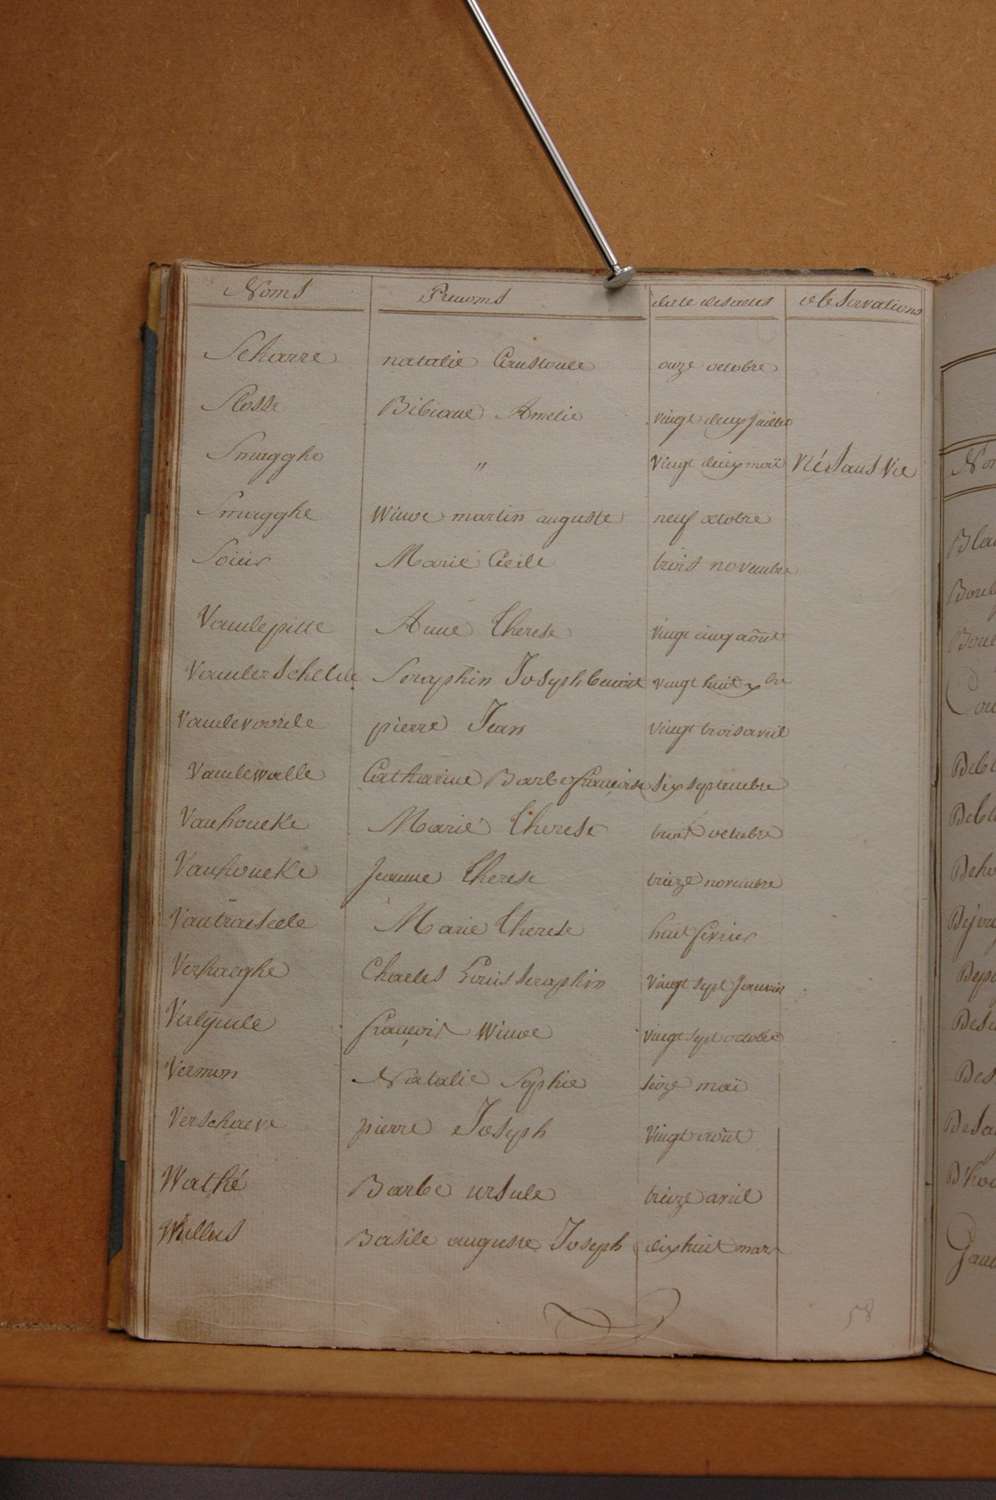 Noms Prenoms date des actes observations
Scharre natalie Constance onze octobre
Slosse Bibiane Amelie vingt deux juillet
Smagghe " vingt deux mai né sans vie
Smagghe Winoc martin auguste neuf octobre
Soier Marie Cécile trois novembre
Vandepitte Anne therese vingt cinq août
Vanderschelde Seraphin Joseph benoit vingt huit xbre
Vandevoorde pierre Jean vingt trois avril
Vandewalle Catharine Barbe françoise six septembre
Vanhoucke Marie therese octobre
Vanhoucke Jeanne therese treize novembre
Marie therese huit fevrier
Verhaeghe Charles Louis Seraphin vingt sept janvier
françois Winoc vingt sept octobre
Vermun Natalie Sophie seize maï
Verschaeve pierre Joseph vingt août
Wathé Barbe ursule treize avril
Willius Basile auguste Joseph dix huit mars
58
Non
Bla
Boul
Bou
Cou
Debl
Debl
Deho
Dejon
Depe
Dese
Des
Desa
D'hoo
Gau